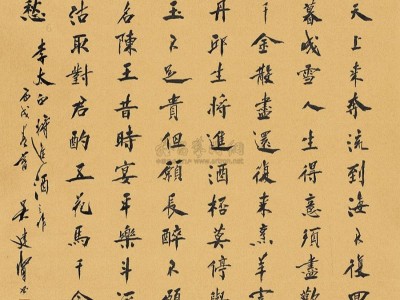 天上來奔流到海不復回
暮成雪人生得意須盡歡
千金散盡還復來烹羊宰
丹邱生將進酒桮莫停與
玉不足貴但願長醉不願
名陳王昔時宴平樂斗酒
沽取對君酌五花馬千金
愁
李太白將進酒
丙戌 吴建賢